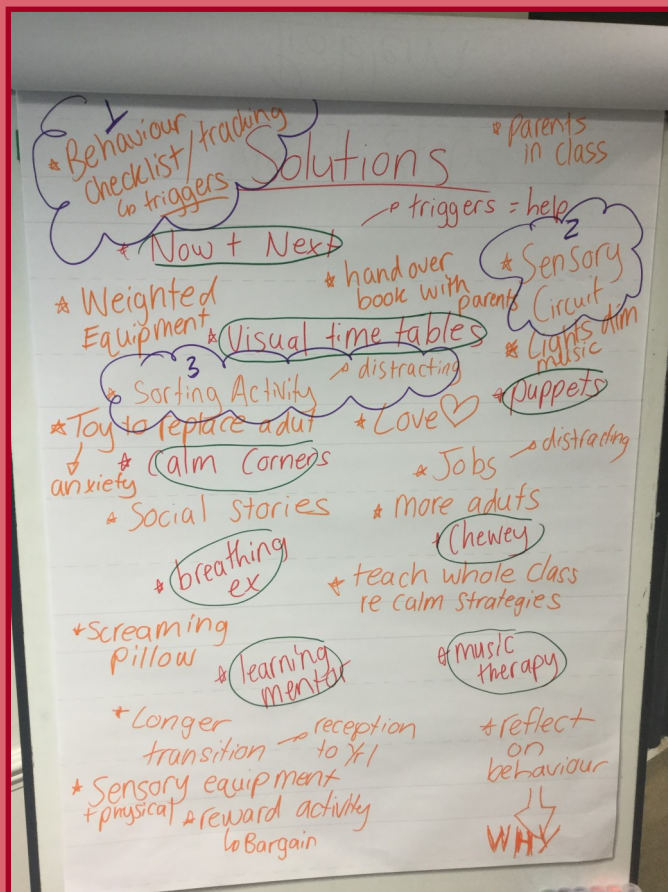 1
* Behaviour
checklist/tracking
↳ triggers
Solutions
* parents
in class
→ triggers = help
* Now + Next
2
* Sensory
Circuit
* Weighted
Equipment
* hand over
book with parents
* Visual time tables
* Lights dim
music
3
* Sorting Activity → distracting
* puppets
* Toy to replace adut
↓
anxiety
* Love ♡
* Calm Corners
* Jobs → distracting
* Social stories
* more aduts
* Chewey
* breathing
ex
* teach whole class
re calm strategies
* screaming
pillow
* learning
mentor
* music
therapy
* Longer
transition → reception
to Yr1
* reflect
on
behaviour
WHY
* Sensory equipment
+ physical
* reward activity
↳ Bargain